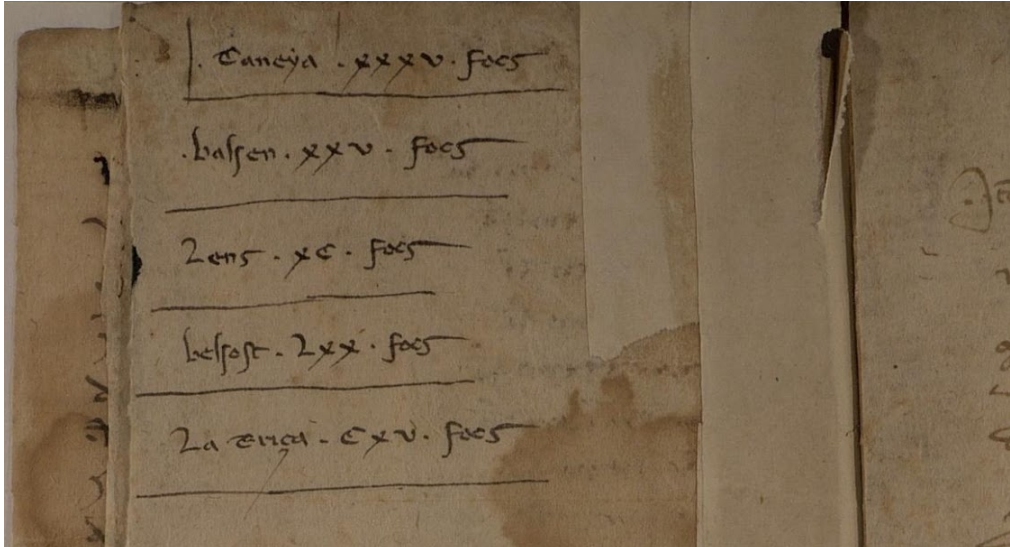 . Taneya . xxxv . focs
. balsen . xxv . focs
Lens . xc . focs
belsost . Lxx . focs
La Eriça . Cxv . focs